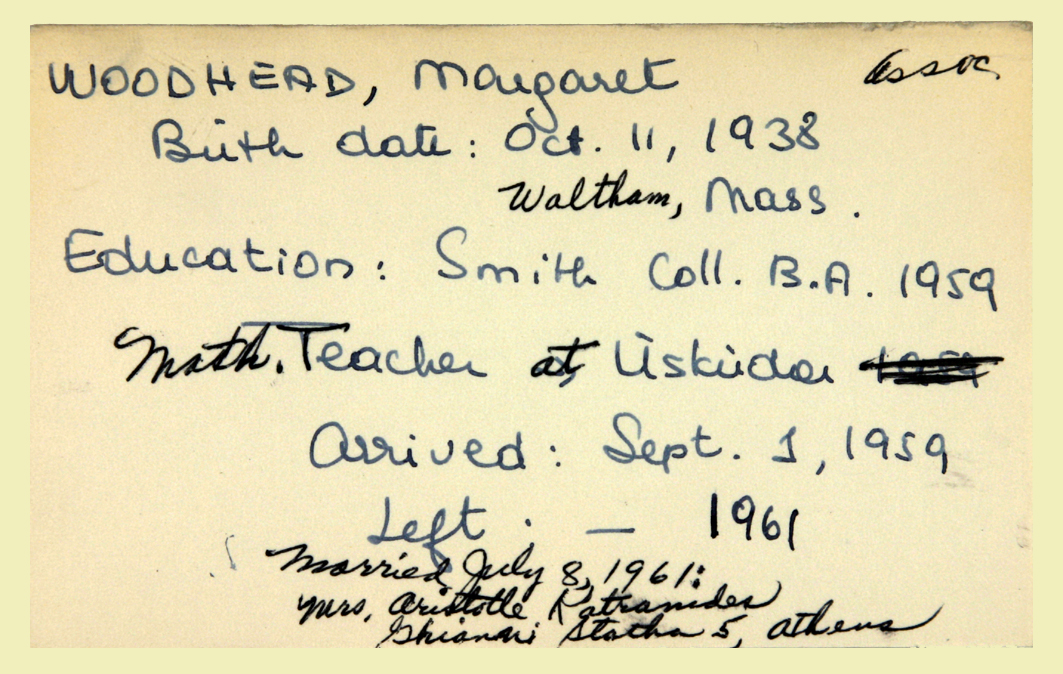 WOODHEAD, Margaret Assoc.
Birth date: Oct. 11, 1938
Waltham, Mass.
Education: Smith Coll. B.A. 1959
Math. Teacher at Üsküdar
Arrived: Sept. 1, 1959
Left: — 1961
Married July 8, 1961:
Mrs. Aristotle Katranides
Statha 5, Athens